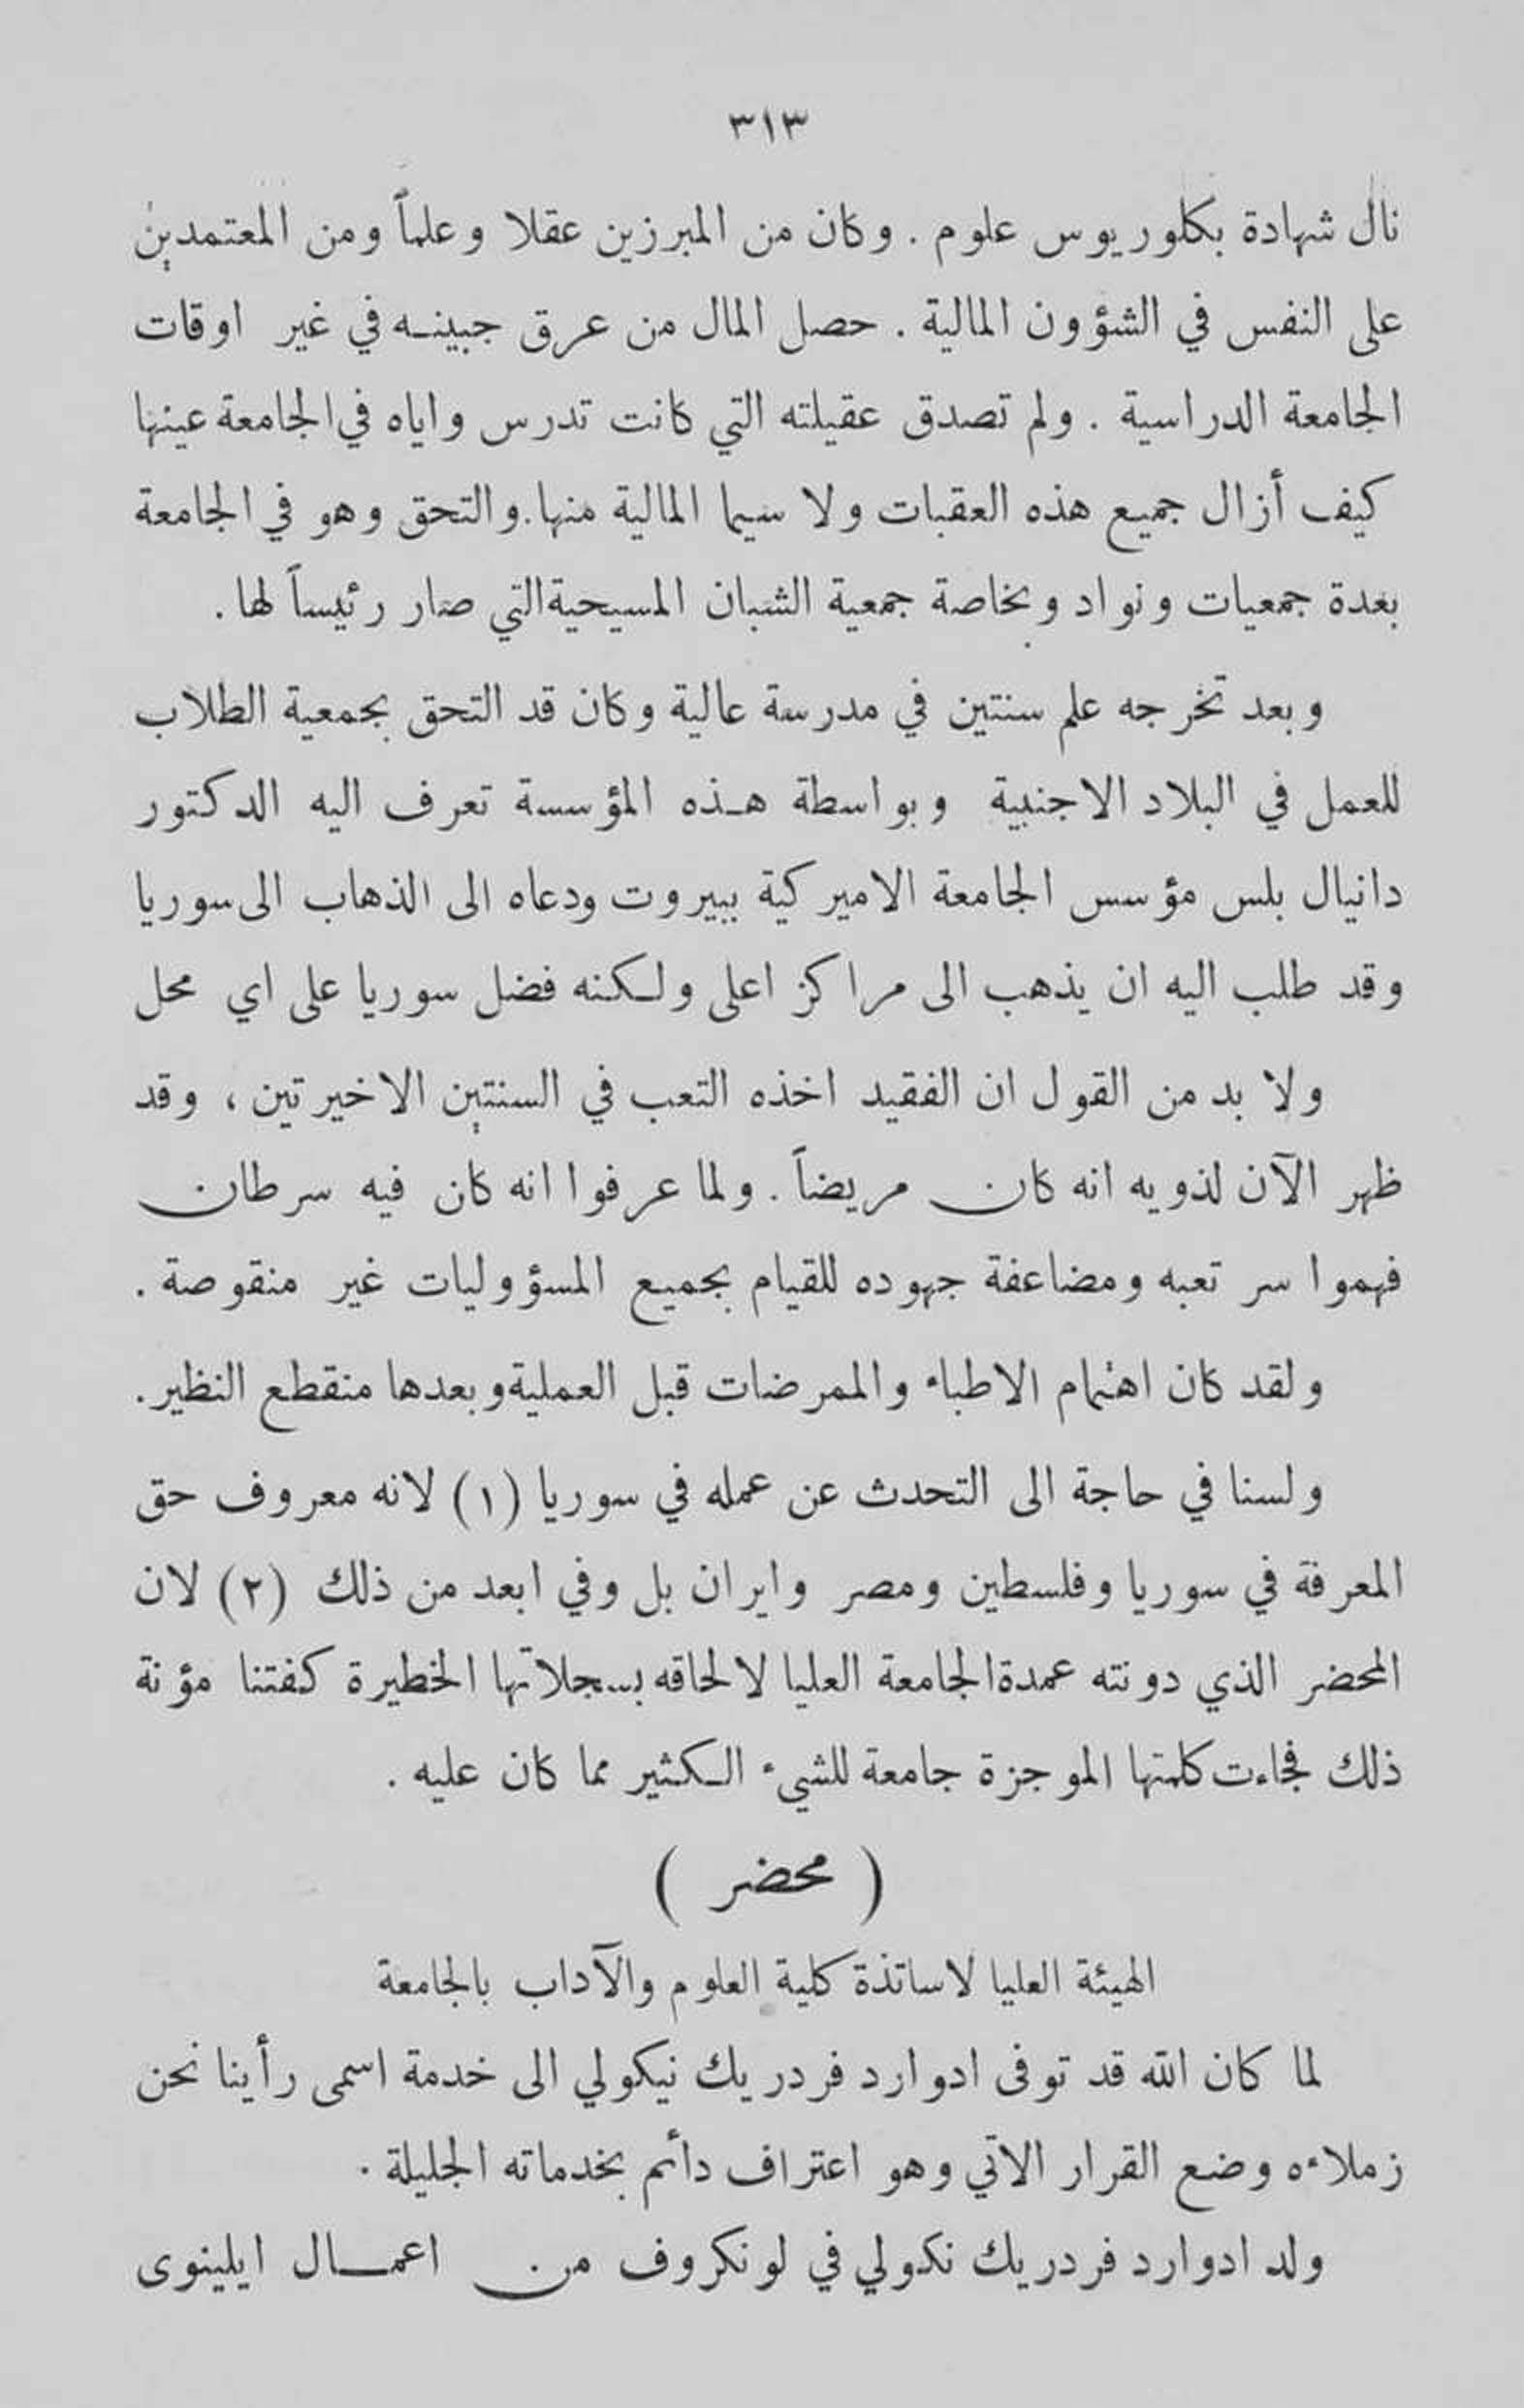 ٣١٣
نال شهادة بكلوريوس علوم . وكان من المبرزين عقلا وعلماً ومن المعتمدين
على النفس في الشؤون المالية . حصل المال من عرق جبينه في غير اوقات
الجامعة الدراسية . ولم تصدق عقيلته التي كانت تدرس واياه في الجامعة عينها
كيف أزال جميع هذه العقبات ولا سيما المالية منها. والتحق وهو في الجامعة
بعدة جمعيات ونواد وبخاصة جمعية الشبان المسيحية التي صار رئيساً لها .
وبعد تخرجه علم سنتين في مدرسة عالية وكان قد التحق بجمعية الطلاب
للعمل في البلاد الاجنبية وبواسطة هذه المؤسسة تعرف اليه الدكتور
دانيال بلس مؤسس الجامعة الاميركية ببيروت ودعاه الى الذهاب الى سوريا
وقد طلب اليه ان يذهب الى مراكز اعلى ولكنه فضل سوريا على اي محل
ولا بد من القول ان الفقيد اخذه التعب في السنتين الاخيرتين ، وقد
ظهر الآن لذويه انه كان مريضاً . ولما عرفوا انه كان فيه سرطان
فهموا سر تعبه ومضاعفة جهوده للقيام بجميع المسؤوليات غير منقوصة .
ولقد كان اهتمام الاطباء والممرضات قبل العملية وبعدها منقطع النظير .
ولسنا في حاجة الى التحدث عن عمله في سوريا (١) لانه معروف حق
المعرفة في سوريا وفلسطين ومصر وايران بل وفي ابعد من ذلك (٢) لان
المحضر الذي دونته عمدة الجامعة العليا لالحاقه بسجلاتها الخطيرة كفتنا مؤنة
ذلك فجاءت كلمتها الموجزة جامعة للشيء الكثير مما كان عليه .
( محضر )
الهيئة العليا لاساتذة كلية العلوم والآداب بالجامعة
لما كان الله قد توفى ادوارد فردريك نيكولي الى خدمة اسمى رأينا نحن
زملاءه وضع القرار الاتي وهو اعتراف دائم بخدماته الجليلة .
ولد ادوارد فردريك نكولي في لونكروف من اعمال ايلينوى